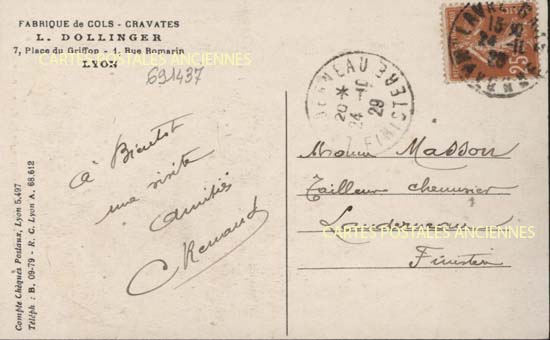 FABRIQUE de COLS - CRAVATES
L. DOLLINGER
7, Place du Griffon - 1, Rue Romarin
LYON
691437
Compte Chèques Postaux, Lyon 5.497
Téléph : B. 09-79 - R. C. Lyon A. 68.612
à Bientôt
une visite
Amitiés
Renaud
LANDERNEAU
20 *
24 -10
29
FINISTERE
25
Masson
Tailleur chemisier
Landerneau
Finistère
CARTES POSTALES ANCIENNES
CARTES POSTALES ANCIENNES
CARTES POSTALES ANCIENNES